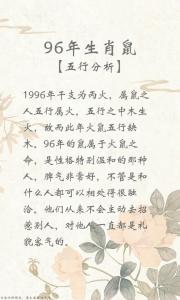 96年生肖鼠
【五行分析】
1996年干支为丙火，属鼠之
人五行属火，五行之中木生
火，故而此年火鼠五行缺
木。96年的鼠属于火鼠之
命，是性格特别温和的那种
人，脾气非常好，不管是和
什么人都可以相处得很融
洽。他们从来不会主动去招
惹别人，对他人一直都是礼
貌客气的。